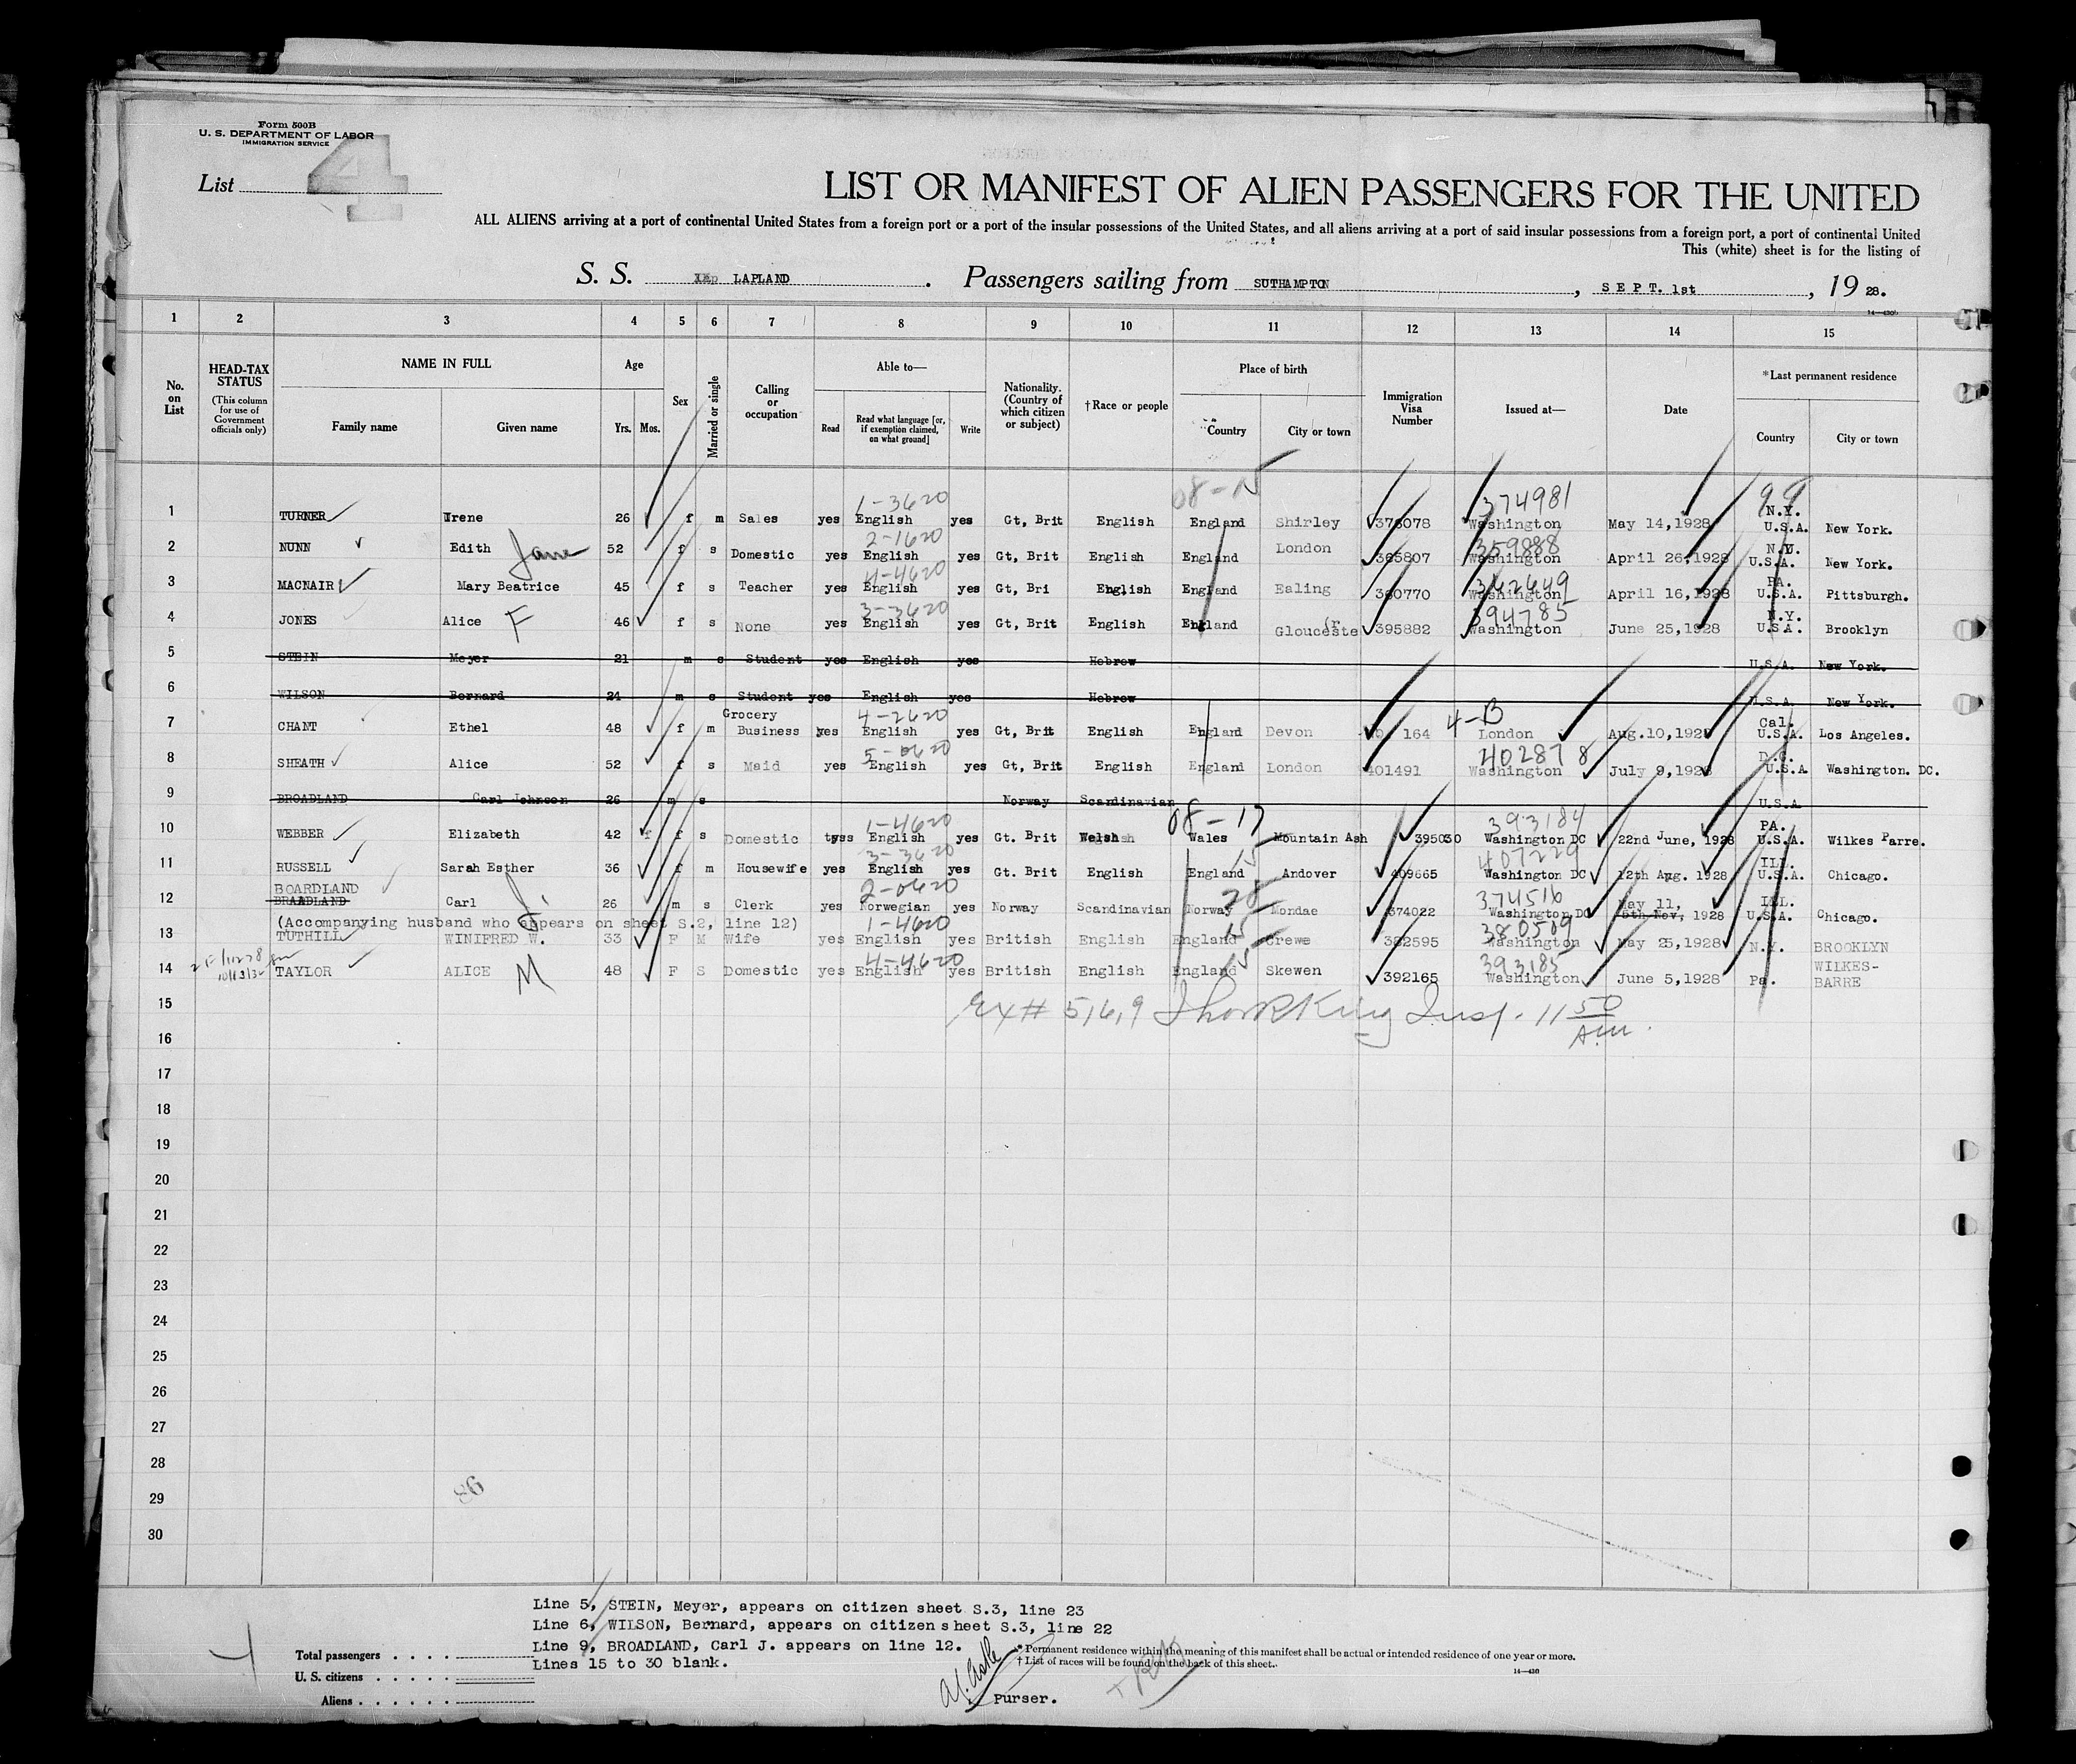 Form 500B
U. S. DEPARTMENT OF LABOR
IMMIGRATION SERVICE
4
List
LIST OR MANIFEST OF ALIEN PASSENGERS FOR THE UNITED
ALL ALIENS arriving at a port of continental United States from a foreign port or a port of the insular possessions of the United States, and all aliens arriving at a port of said insular possessions from a foreign port, a port of continental United
This (white) sheet is for the listing of
S. S. LAPLAND. Passengers sailing from SUTHAMPTON, SEPT. 1st, 19 28.
1 2 3 4 5 6 7 8 9 10 11 12 13 14 15
No. on List
HEAD-TAX STATUS (This column for use of Government officials only)
NAME IN FULL Family name Given name
Age Yrs. Mos.
Sex
Married or single
Calling or occupation
Able to— Read Read what language [or, if exemption claimed, on what ground] Write
Nationality. (Country of which citizen or subject)
†Race or people
Place of birth Country City or town
Immigration Visa Number
Issued at—
Date
*Last permanent residence Country City or town
08-15
1-3620 374981 99
1 TURNER Irene 26 f m Sales yes English yes Gt, Brit English England Shirley 376078 Washington May 14,1928 N.Y. U.S.A. New York.
2-1620 359888
2 NUNN Edith Jane 52 f s Domestic yes English yes Gt, Brit English England London 365807 Washington April 26,1928 N.Y. U.S.A. New York.
4-4620 362649
3 MACNAIR Mary Beatrice 45 f s Teacher yes English yes Gt, Bri English England Ealing 360770 Washington April 16,1928 PA. U.S.A. Pittsburgh.
3-3620 394785
4 JONES Alice F 46 f s None yes English yes Gt, Brit English England Glouceste(r 395882 Washington June 25,1928 N.Y. U.S.A. Brooklyn
5 STEIN Meyer 21 m s Student yes English yes Hebrew U.S.A. New York.
6 WILSON Bernard 24 m s Student yes English yes Hebrew U.S.A. New York.
4-2620 4-B
7 CHANT Ethel 48 f m Grocery Business yes English yes Gt, Brit English England Devon 164 London Aug.10,1928 Cal. U.S.A. Los Angeles.
5-0620 402878
8 SHEATH Alice 52 f s Maid yes English yes Gt, Brit English England London 401491 Washington July 9,1928 D.C. U.S.A Washington. DC.
9 BROADLAND Carl Johnson 26 m s Norway Scandinavian U.S.A
08-17
1-4620 393184
10 WEBBER Elizabeth 42 f s Domestic yes English yes Gt. Brit Welsh Wales Mountain Ash 395030 Washington DC 22nd June, 1928 PA. U.S.A. Wilkes Parre.
3-3620 407229
11 RUSSELL Sarah Esther 36 f m Housewife yes English yes Gt. Brit English England 15 Andover 409665 Washington DC 12th Aug. 1928 ILL. U.S.A. Chicago.
2-0620 374516
12 BOARDLAND BRAADLAND Carl J. 26 m s Clerk yes Norwegian yes Norway Scandinavian Norway 28 Mondae 374022 Washington DC May 11, 1928 ILL. U.S.A. Chicago.
(Accompanying husband who appears on sheet S.2, line 12)
1-4620 380509
13 TUTHILL WINIFRED W. 33 F M Wife yes English yes British English England 15 Crewe 382595 Washington May 25,1928 N.Y. BROOKLYN
4-4620 393185
14 TAYLOR ALICE M 48 F S Domestic yes English yes British English England 15 Skewen 392165 Washington June 5,1928 Pa. WILKES-BARRE
15 Ex# 5,6,9 Insp. 11 50 AM.
16
17
18
19
20
21
22
23
24
25
26
27
28
29
30
Line 5, STEIN, Meyer, appears on citizen sheet S.3, line 23
Line 6, WILSON, Bernard, appears on citizen sheet S.3, line 22
Line 9, BROADLAND, Carl J. appears on line 12.
Lines 15 to 30 blank.
Total passengers
U. S. citizens
Aliens
* Permanent residence within the meaning of this manifest shall be actual or intended residence of one year or more.
† List of races will be found on the back of this sheet.
14—430
Purser.